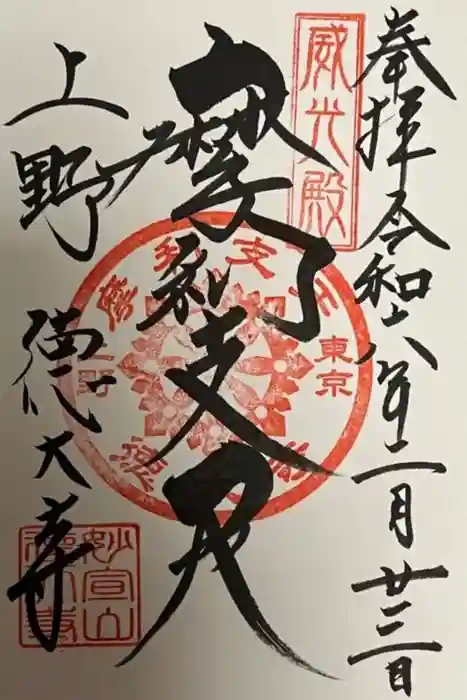 奉拝令和六年二月廿三日
威光殿
摩利支天
摩利支天
東京
上野
上野 徳大寺
妙宣山
徳大寺